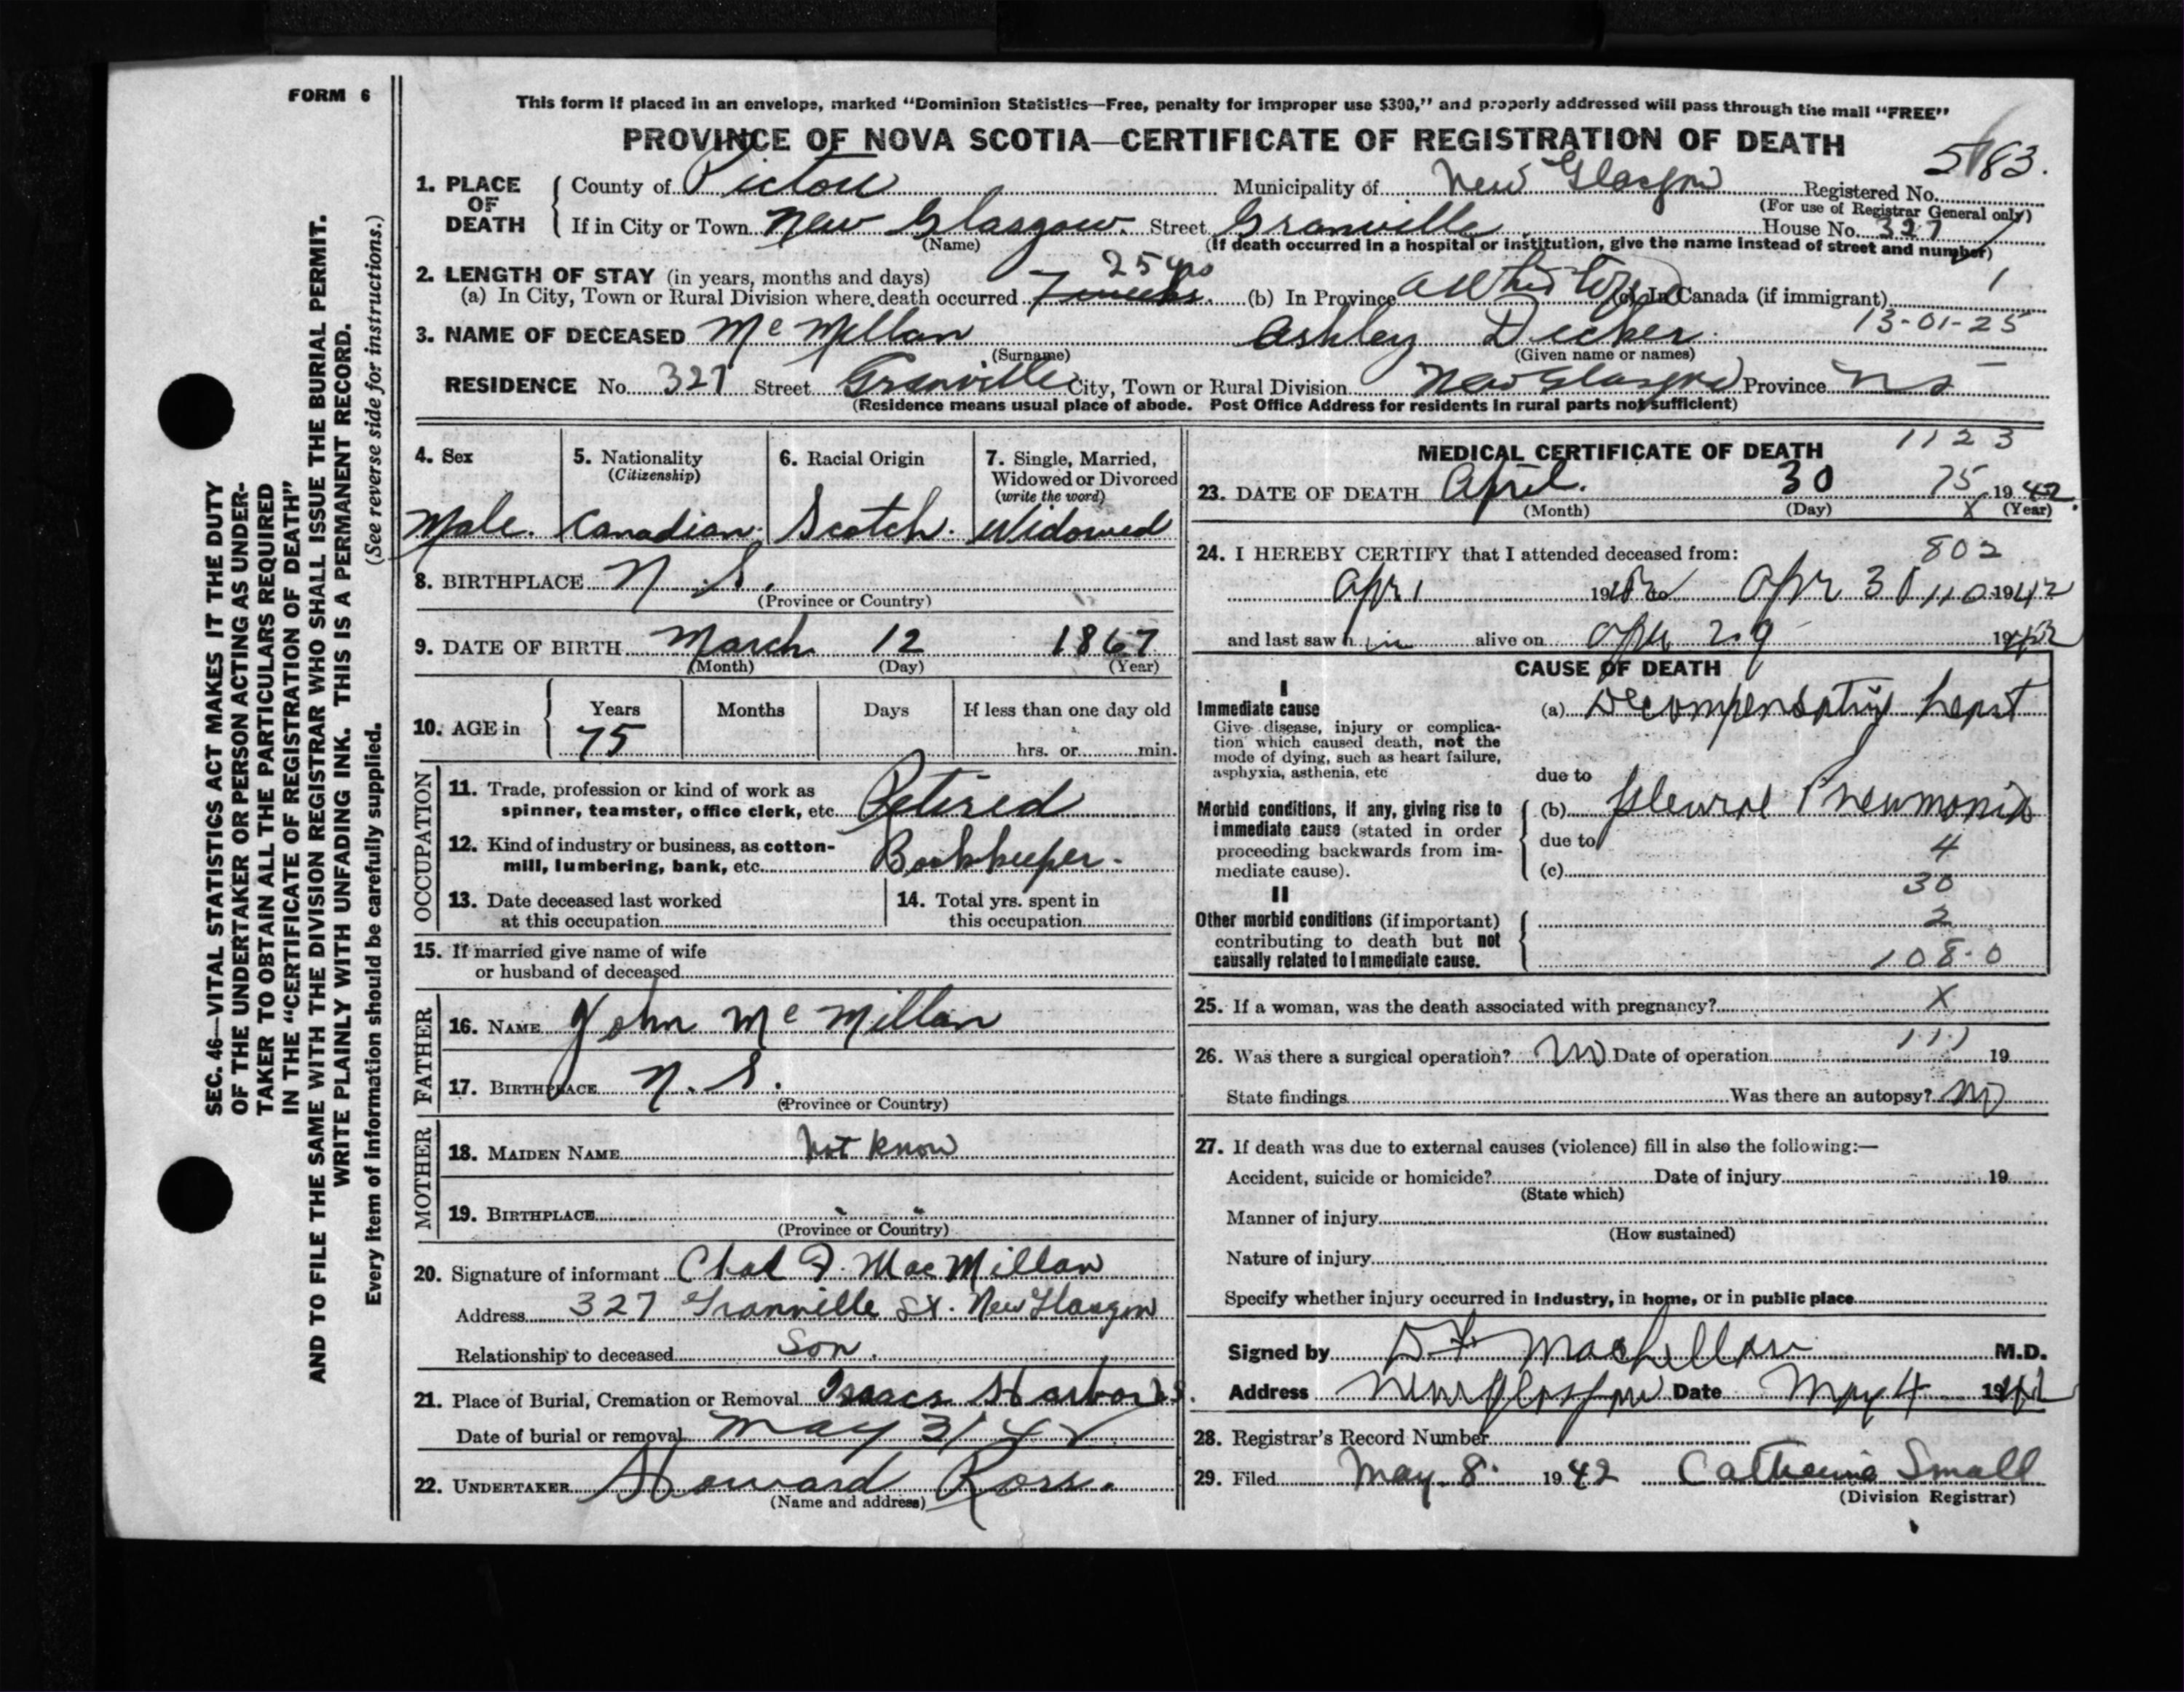 FORM 6
This form if placed in an envelope, marked "Dominion Statistics—Free, penalty for improper use $300," and properly addressed will pass through the mail "FREE"
PROVINCE OF NOVA SCOTIA—CERTIFICATE OF REGISTRATION OF DEATH
583.
1. PLACE OF DEATH County of Pictou Municipality of New Glasgow Registered No.
(For use of Registrar General only)
If in City or Town New Glasgow. Street Granville House No. 327
(Name) (If death occurred in a hospital or institution, give the name instead of street and number)
2. LENGTH OF STAY (in years, months and days) 25 yrs
(a) In City, Town or Rural Division where death occurred 7 weeks. (b) In Province all his life (c) In Canada (if immigrant) 1
13-01-25
3. NAME OF DECEASED McMillan Ashley Decker
(Surname) (Given name or names)
RESIDENCE No. 327 Street Granville City, Town or Rural Division New Glasgow Province N S
(Residence means usual place of abode. Post Office Address for residents in rural parts not sufficient)
4. Sex Male.
5. Nationality (Citizenship) Canadian.
6. Racial Origin Scotch.
7. Single, Married, Widowed or Divorced (write the word) Widowed
8. BIRTHPLACE N. S.
(Province or Country)
9. DATE OF BIRTH March 12 1867
(Month) (Day) (Year)
10. AGE in Years Months Days If less than one day old
75 hrs. or min.
OCCUPATION
11. Trade, profession or kind of work as
spinner, teamster, office clerk, etc. Retired
12. Kind of industry or business, as cotton-
mill, lumbering, bank, etc. Bookkeeper.
13. Date deceased last worked
at this occupation
14. Total yrs. spent in
this occupation
15. If married give name of wife
or husband of deceased
FATHER
16. NAME John McMillan
17. BIRTHPLACE N. S.
(Province or Country)
MOTHER
18. MAIDEN NAME Not Know
19. BIRTHPLACE " "
(Province or Country)
20. Signature of informant Chas F. MacMillan
Address 327 Granville St. New Glasgow
Relationship to deceased Son.
21. Place of Burial, Cremation or Removal Isaacs Harbor N.S.
Date of burial or removal May 3/42
22. UNDERTAKER Howard Ross.
(Name and address)
MEDICAL CERTIFICATE OF DEATH 1123
23. DATE OF DEATH April. 30 75 1942.
(Month) (Day) X (Year)
24. I HEREBY CERTIFY that I attended deceased from: 802
Apr 1 1942 to Apr 30 110 1942
and last saw him alive on Apr 29 1942
CAUSE OF DEATH
I
Immediate cause
Give disease, injury or complica-
tion which caused death, not the
mode of dying, such as heart failure,
asphyxia, asthenia, etc
(a) Decompensating heart
due to
Morbid conditions, if any, giving rise to
immediate cause (stated in order
proceeding backwards from im-
mediate cause).
(b) Pleural Pneumonia
due to 4
(c) 30
II
Other morbid conditions (if important)
contributing to death but not
causally related to immediate cause.
2
108.0
25. If a woman, was the death associated with pregnancy? X
26. Was there a surgical operation? No Date of operation 111 19
State findings Was there an autopsy? No
27. If death was due to external causes (violence) fill in also the following:—
Accident, suicide or homicide? Date of injury 19
(State which)
Manner of injury
(How sustained)
Nature of injury
Specify whether injury occurred in industry, in home, or in public place
Signed by M.D.
Address New Glasgow Date May 4 1942
28. Registrar's Record Number
29. Filed May 8. 1942 Catherine Small
(Division Registrar)
SEC. 46—VITAL STATISTICS ACT MAKES IT THE DUTY
OF THE UNDERTAKER OR PERSON ACTING AS UNDER-
TAKER TO OBTAIN ALL THE PARTICULARS REQUIRED
IN THE "CERTIFICATE OF REGISTRATION OF DEATH"
AND TO FILE THE SAME WITH THE DIVISION REGISTRAR WHO SHALL ISSUE THE BURIAL PERMIT.
WRITE PLAINLY WITH UNFADING INK. THIS IS A PERMANENT RECORD.
Every item of information should be carefully supplied. (See reverse side for instructions.)